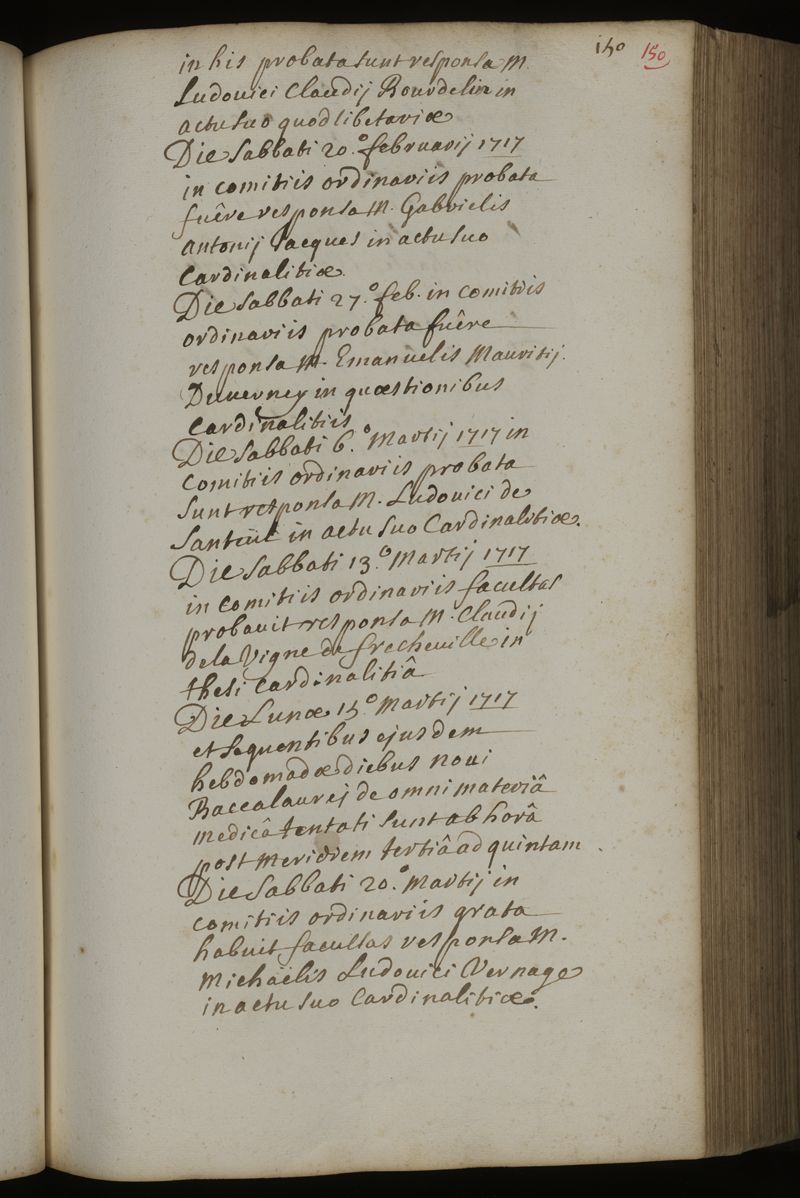 150 150
in his probata sunt responsa M.
Ludovici Claudij Bourdelin in
actu suo quodlibetariæ
Die Sabbati 20.º februarij 1717
in comitiis ordinariis probata
fuêre responsa M. Gabrielis
Antonij Jacques in actu suo
Cardinalitiæ.
Die Sabbati 27.º feb. in comitiis
ordinariis probata fuêre
responsa M. Emanuelis Mauritij
Duverney in quæstionibus
Cardinalitiis
Die Sabbati 6.º Martij 1717 in
Comitiis ordinariis probata
sunt responsa M. Ludovici de
Santeül in actu suo Cardinalitiæ.
Die Sabbati 13.º Martij 1717
in comitiis ordinariis facultas
probavit responsa M. Claudij
dela Vigne de frecheville in
thesi Cardinalitiâ
Die Lunæ 15.º Martij 1717
et sequentibus ejusdem
hebdomadæ diebus novi
Baccalaurej de omni materiâ
medicâ tentati sunt ab horâ
post meridiem tertiâ ad quintam.
Die Sabbati 20.º Martij in
comitiis ordinariis grata
habuit facultas responsa M.
Michaëlis Ludovici Vernage
in actu suo Cardinalitiæ.